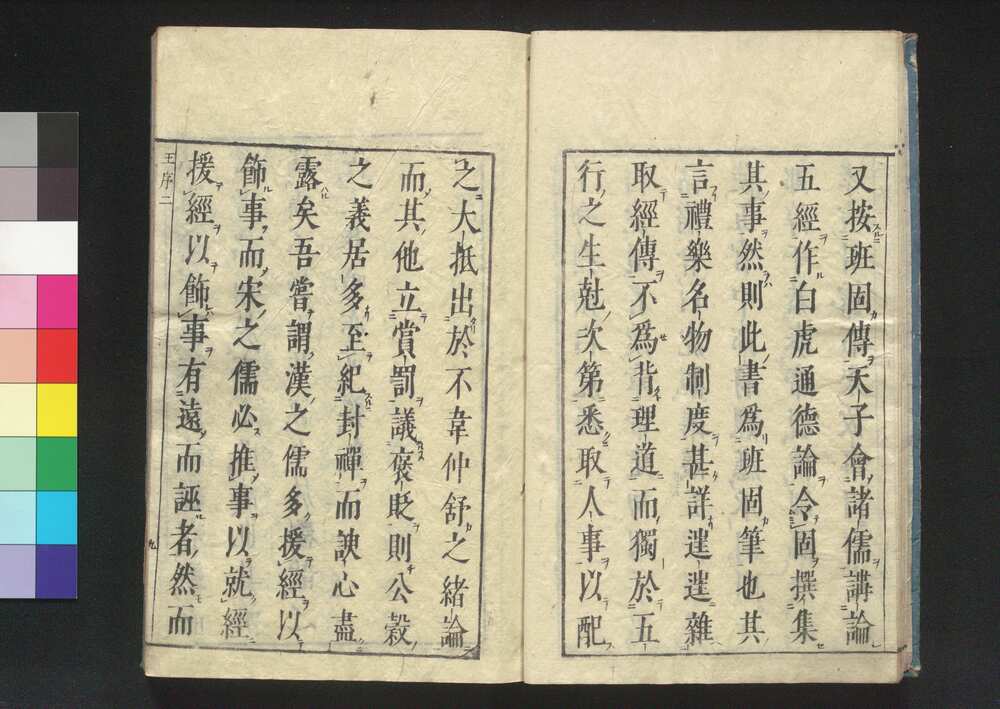 又按班固傳天子會諸儒講論
五經作白虎通德論令固撰集
其事然則此書爲班固筆也其
言禮樂名物制度甚詳逞逞雜
取經傳不爲背理道而獨於五
行之生尅次第悉取人事以配
之大抵出於不韋仲舒之緒論
而其他立賞罰議褒貶則公穀
之義居多至紀封禪而諛心盡
露矣吾嘗謂漢之儒多援經以
飾事而宋之儒必推事以就經
援經以飾事有遠而誣者然而
王序二